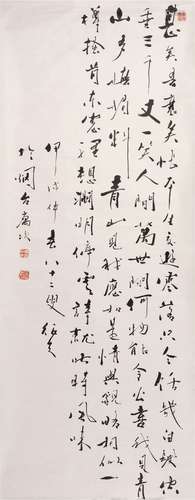 甚矣吾衰矣悵平生交遊零落只今餘幾白髮空
垂三千丈一笑人間萬世問何物能令公喜我見青
山多嫵媚料青山見我應如是情與貌略相似一
樽搔首東窗裡想淵明停雲詩就此時風味
甲戌仲春八十二叟
於烟台